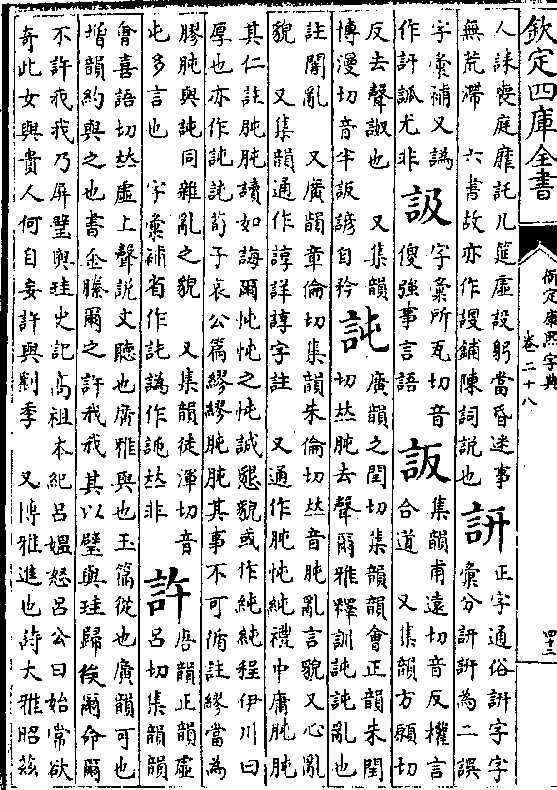 欽定四庫全書
御定康熙字典
卷二十八
四十三
人誄喪庭靡託几筵虛設躬當昏迷事
無荒滯　六書故亦作謾鋪陳詞說也
訮
正字通俗訮字字
彙分訮訮為二誤
字彙補又譌
作訏訛尤非
字彙所瓦切音
傻強事言語
集韻甫遠切音反權言
合道　又集韻方願切
反去聲誽也　又集韻
博漫切音半諺自矜
訰
廣韻之閏切集韻韻會正韻朱閏
切𠀤肫去聲爾雅釋訓訰訰亂也
註闇亂　又廣韻章倫切集韻朱倫切𠀤音肫亂言貌又心亂
貌　又集韻通作諄詳諄字註　又通作肫忳純禮中庸肫肫
其仁註肫肫讀如誨爾忳忳之忳誠懇貌或作純純程伊川曰
厚也亦作訰訰荀子哀公篇繆繆肫肫其事不可循註繆當為
膠肫與訰同雜亂之貌　又集韻徒渾切音
屯多言也　字彙補省作譌作𠀤非
許
唐韻正韻虛
呂切集韻韻
會喜語切𠀤虛上聲說文聽也廣雅與也玉篇從也廣韻可也
增韻約與之也書金縢爾之許我我其以璧與珪歸俟爾命爾
不許我我乃屏璧與珪史記高祖本紀呂媼怒呂公曰始常欲
奇此女與貴人何自妄許與劉季　又博雅進也詩大雅昭茲